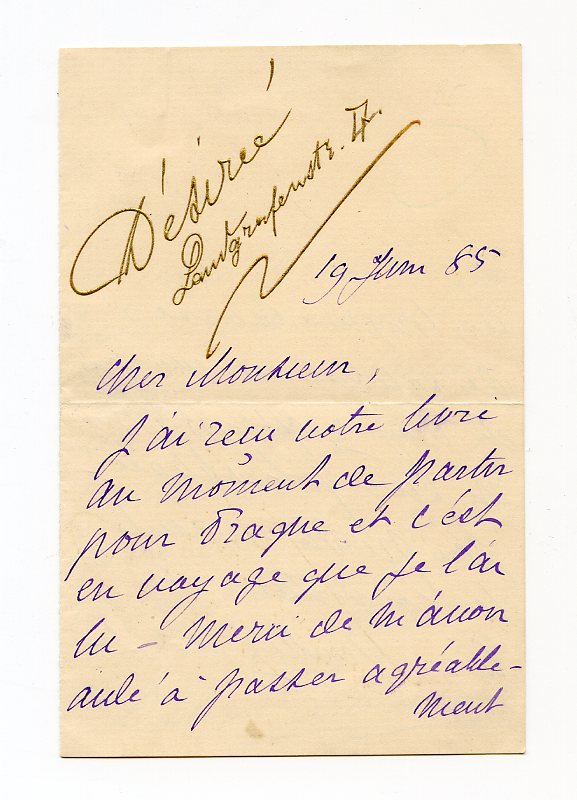 Désirée
Landgrafenstr. 17.
19 Juin 85
cher Monsieur,
J'ai recu votre livre
au moment de partir
pour Prague et c'est
en voyage que je l'ai
lu – merci de m'avoir
aidé à passer agréable-
ment